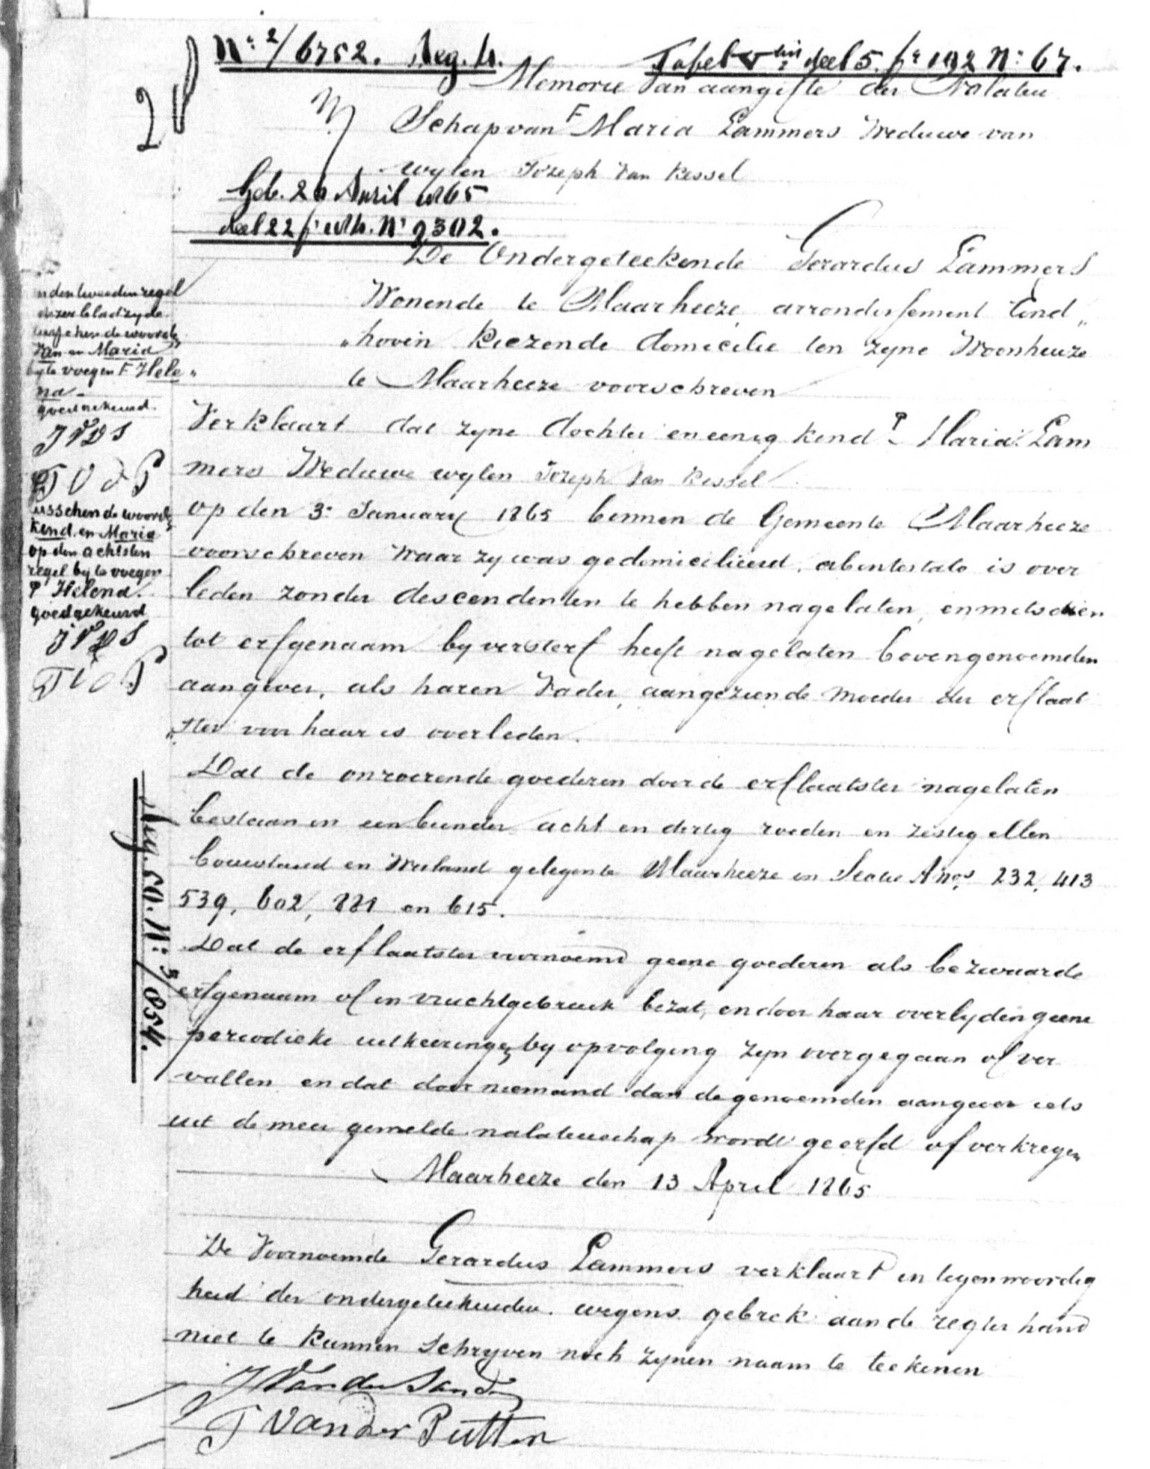 N° 2/6752. Reg. 4. Tafel V bis deel 5. f° 192 N° 67.
Memorie van aangifte der Nalaten
Schap van F Maria Lammers Weduwe van
wylen Jozeph Van Kessel
Geb. 20 April 1865
deel 22 f° N° 9302.
De Ondergeteekende Gerardus Lammers
Wonende te Maarheeze arrondissement Eind„
„hoven kiezende domicilie ten zyne Woonheuze
te Maarheeze voorschreven
Verklaart dat zyne dochter en eenig kend P Maria Lam
mers Weduwe wylen Jozeph Van Kessel
op den 3e January 1865 bennen de Gemeente Maarheeze
voorschreven waar zy was gedomicilieerd, abentestato is over
leden zonder descendenten te hebben nagelaten, en mitsdien
tot erfgenaam by versterf heeft nagelaten bovengenoemden
aangever, als haren Vader, aangeziende moeder der erflaat
„ster voor haar is overleden.
Dat de onroerende goederen door de erflaatster nagelaten
bestaan in een bunder acht en dertig roeden en zestig ellen
bouwland en Weiland gelegen te Maarheeze in Sectie A nos 232, 413
539, 602, 881 en 615.
Dat de erflaatster voornoemd geene goederen als bezwaarde
erfgenaam of in vruchtgebruik bezat, en door haar overlyden geene
periodieke uitkeeringen by opvolging zyn overgegaan of ver
vallen en dat door niemand dan de genoemden aangever iets
uit de meer gemelde nalatenschap wordt geerfd of verkregen
Maarheeze den 13 April 1865
De Voornoemde Gerardus Lammers verklaart in tegenwoordig
heid der ondergeteekenden wegens gebrek aan de regter hand
niet te kunnen Schryven noch zynen naam te teekenen
J Van der Sande
T Van der Putten
2
in den tweeden regel
dezer bladzyde
tusschen de woorden
Van en Maria
by te voegen F Hele„
na
goedgekeurd.
JVDS
TVdP
tusschen de woorden
kend en Maria
op den achtsten
regel by te voegen
P Helena
goedgekeurd
JVDS
TVdP
Reg. 50. N° 3/854.